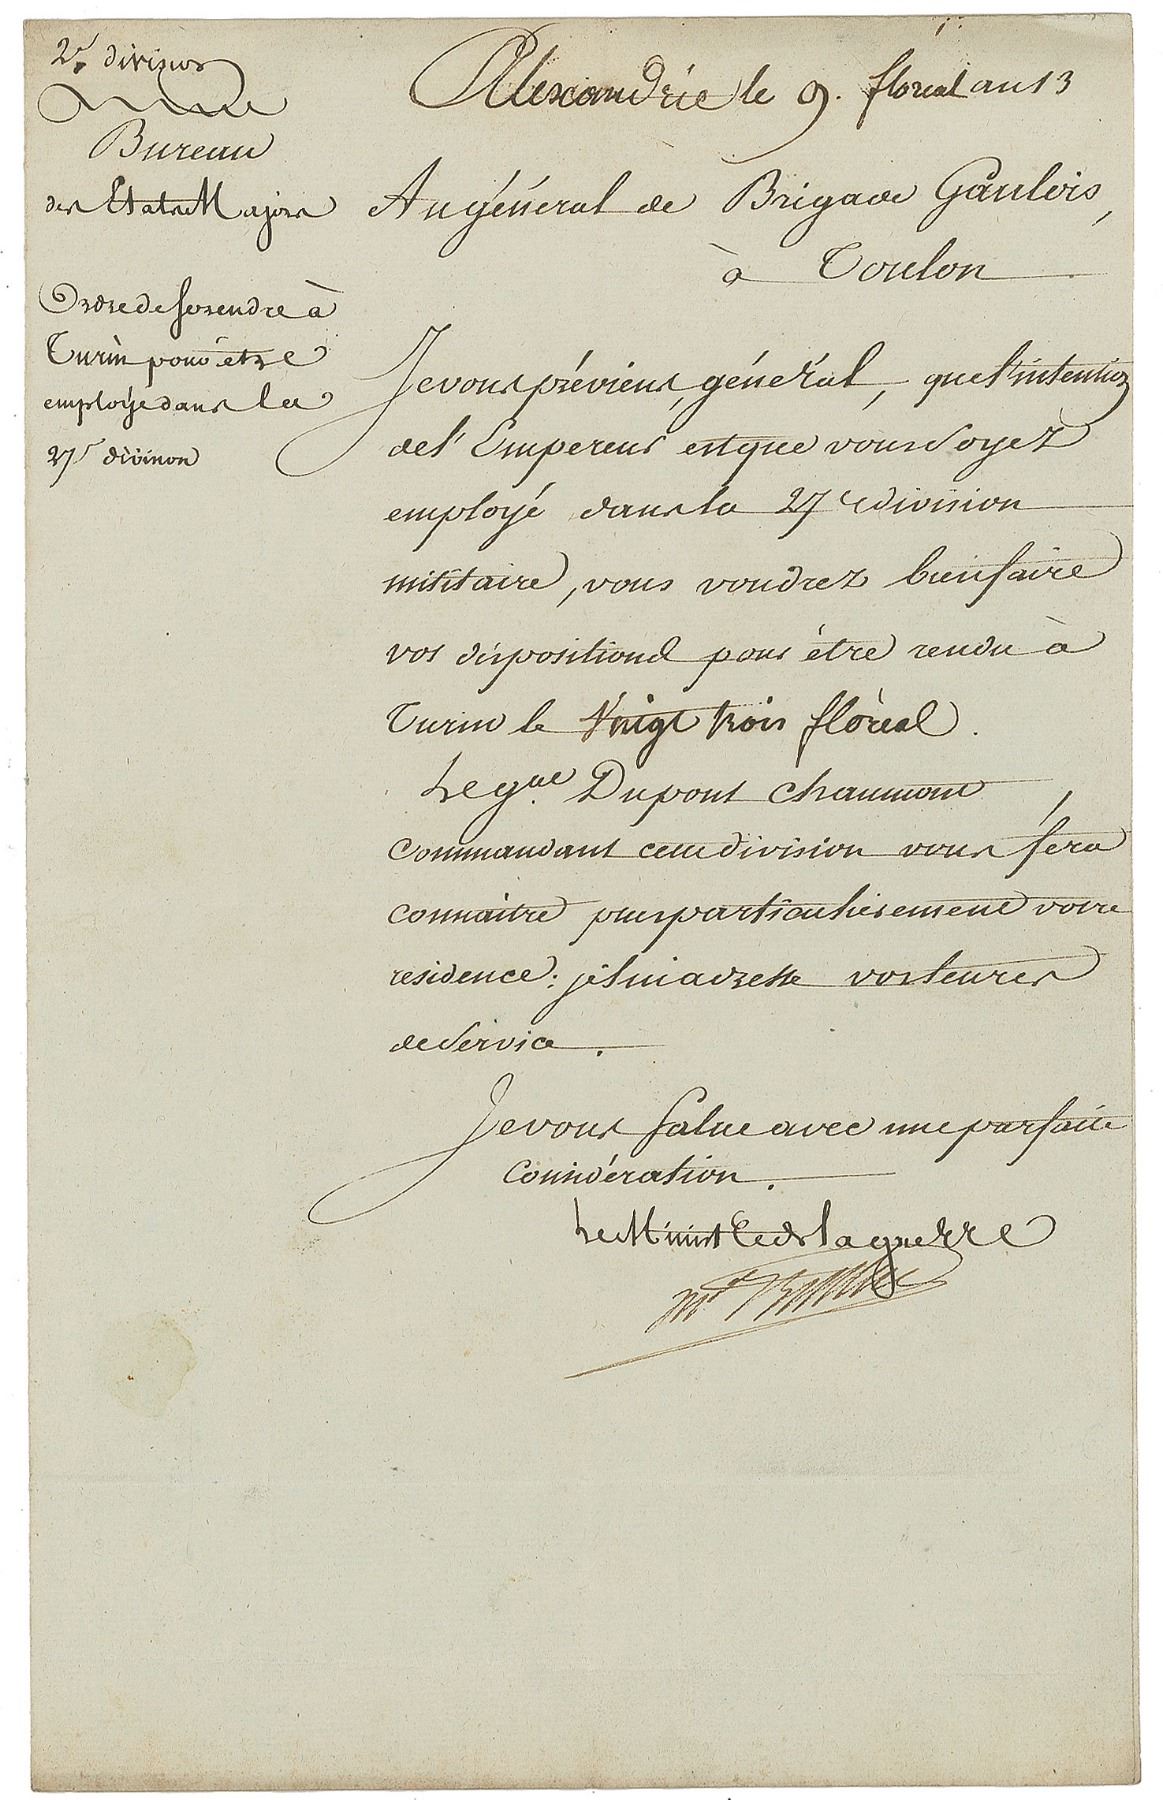 2e. division
Bureau
des Etats Majors
Ordre de se rendre à
Turin pour être
employé dans la
27e division
Alexandrie le 9. floréal an 13
Au général de Brigade Gaulois,
à Toulon
Je vous préviens, général, que l'intention
de l'Empereur est que vous soyez
employé dans la 27e division
militaire, vous voudrez bien faire
vos dispositions pour être rendu à
Turin le Vingt trois floréal.
Le gal. Dupont Chaumont
commandant cette division vous fera
connaitre plus particulièrement votre
residence: je lui adresse vos lettres
de service.
Je vous salue avec une parfaite
considération.
Le Ministre de la guerre
Mal Berthier